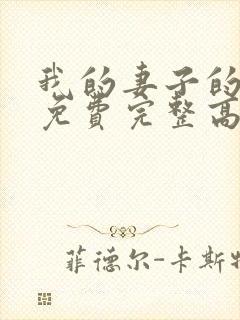 我的妻子的
免费完整高
菲德尔-卡斯特